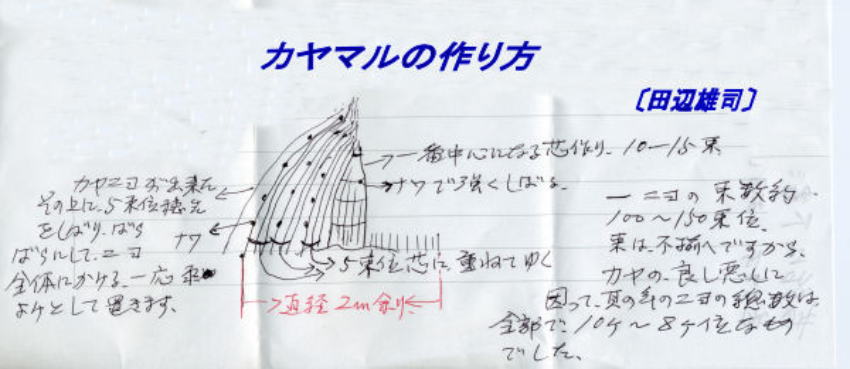 カヤマルの作り方
〔田辺雄司〕
一番中心になる芯作り、10ー15束
ナワで強くしばる。
カヤニヨが出来た
その上に、5束位穂先
をしばり、ばら
ばらにして、ニヨ
全体にかける、一応
よけとして置きます。
ナワ
5束位芯に重ねてゆく
直径2m余り
一ニヨの束数約
100〜150束位、
束は、不揃へですから、
カヤの、良し悪しに
因って、其の年のニヨの総数は、
全部で、10ケ〜8ケ位なもの
でした。